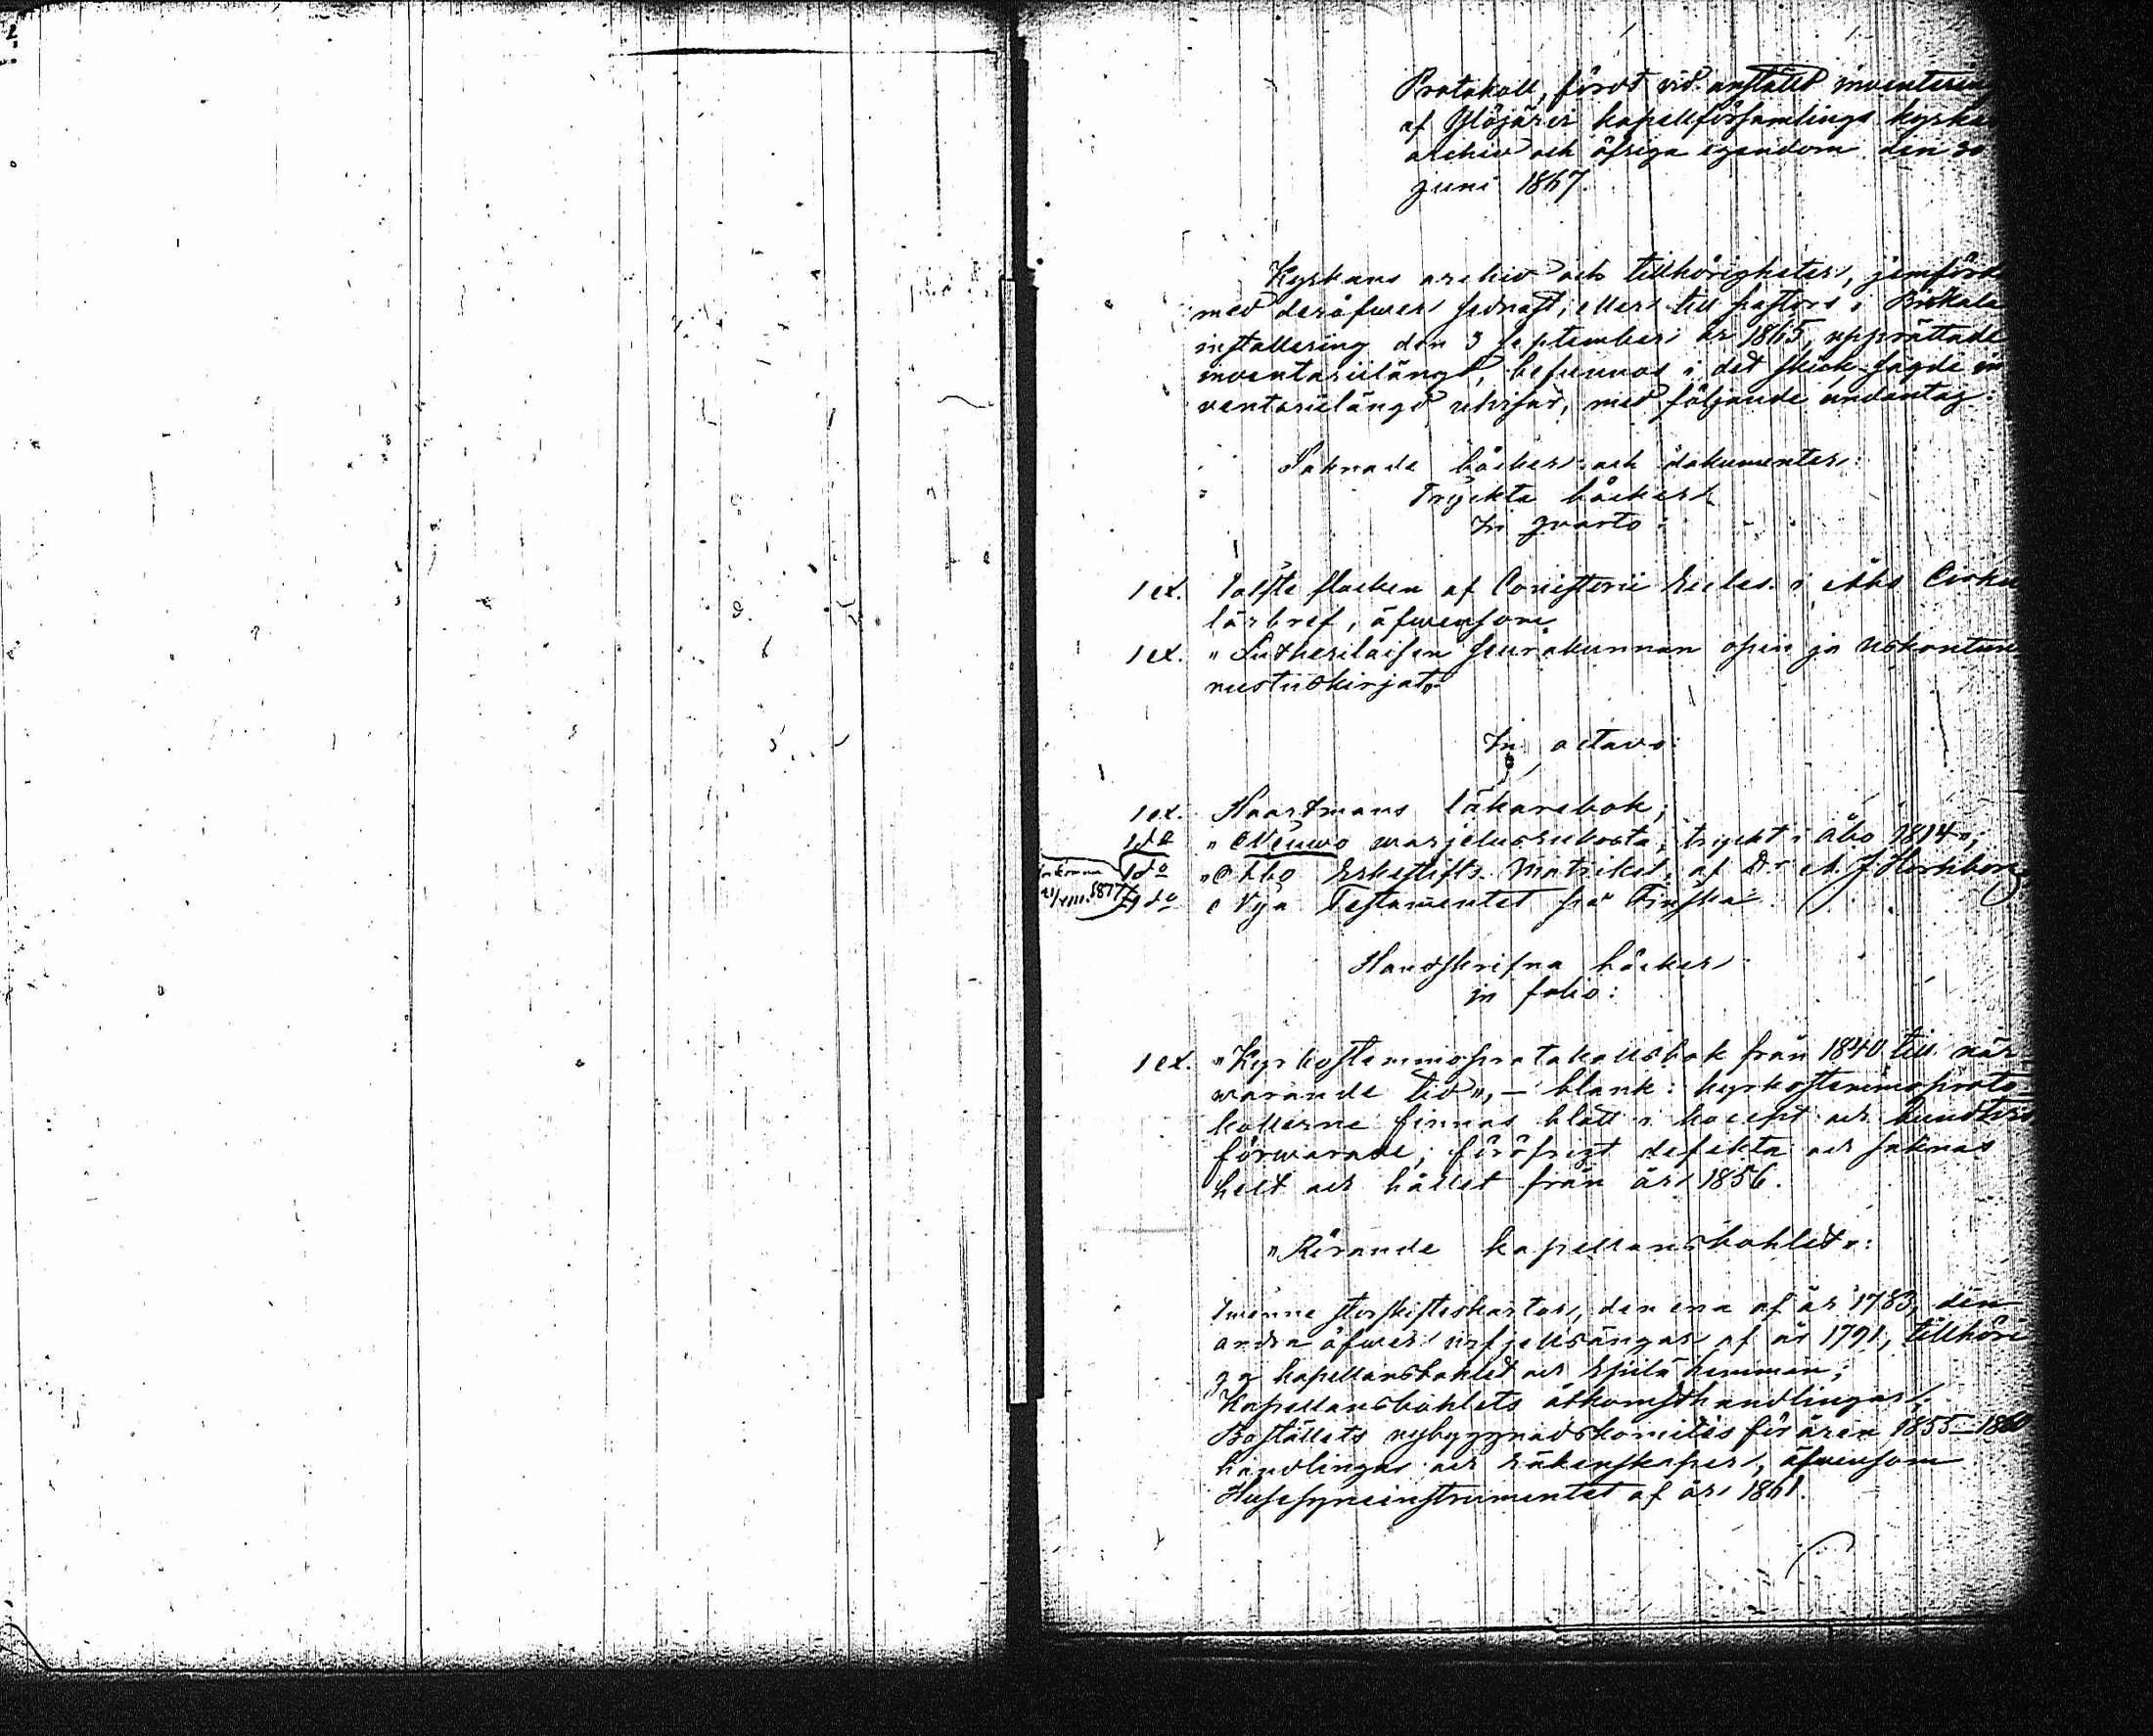 Protokoll, fördt vid anställd inventering
af Ylöjärvi kapellförsamlings kyrka
archiv och öfriga egendom den 30
juni 1867.
Kyrkans archiv och tillhörigheter, jemförde
med deröfwer sednast, eller till pastors i Birkala
installering den 3 september år 1865, upprättade
inventariilängd, befunnos i det skick sagde in
ventariilängd utvisar, med följande undantag:
Saknade böcker och dokumenter:
Tryckta böcker
In qvarto:
1 ex. Tolfte flocken af Consistorii Eccles. i Åbo Cirku
lärbref, äfwensom
1 ex. "Lutherilaisen seurakunnan opin ja uskontun
nustuskirjat"
In octavo:
1 ex. Haartmans läkarebok;
1 do " Neuwo warjelusrukosta, tryckt i Åbo 1814";
1 do "Åbo Erkestifts Matrikel, af Dr A. J. Hornborg
1877 1 do Nya Testamentet på Finska
Handskrifna böcker
in folio:
1 ex. "Kyrkostemmoprotokollsbok från 1840 till när-
warande tid", - blank: kyrkostemmoproto-
kollerne finnas blott i koncept och bundtvis
förwarade, föröfrigt defekta och saknas
helt och hållet från år 1856.
"Rörande kapellansbohlet":
Twenne storskifteskartor, den ena af år 1783, den
andra öfwer ängar af år 1791, tillhöri
ga kapellansbohlet och hemman;
Kapellansbohlets åtkomsthandlingar,
Boställets nybyggnadskomités för åren 1855-1860
handlingar och räkenskaper, äfwensom
Husesyneinstrumentet af år 1861.